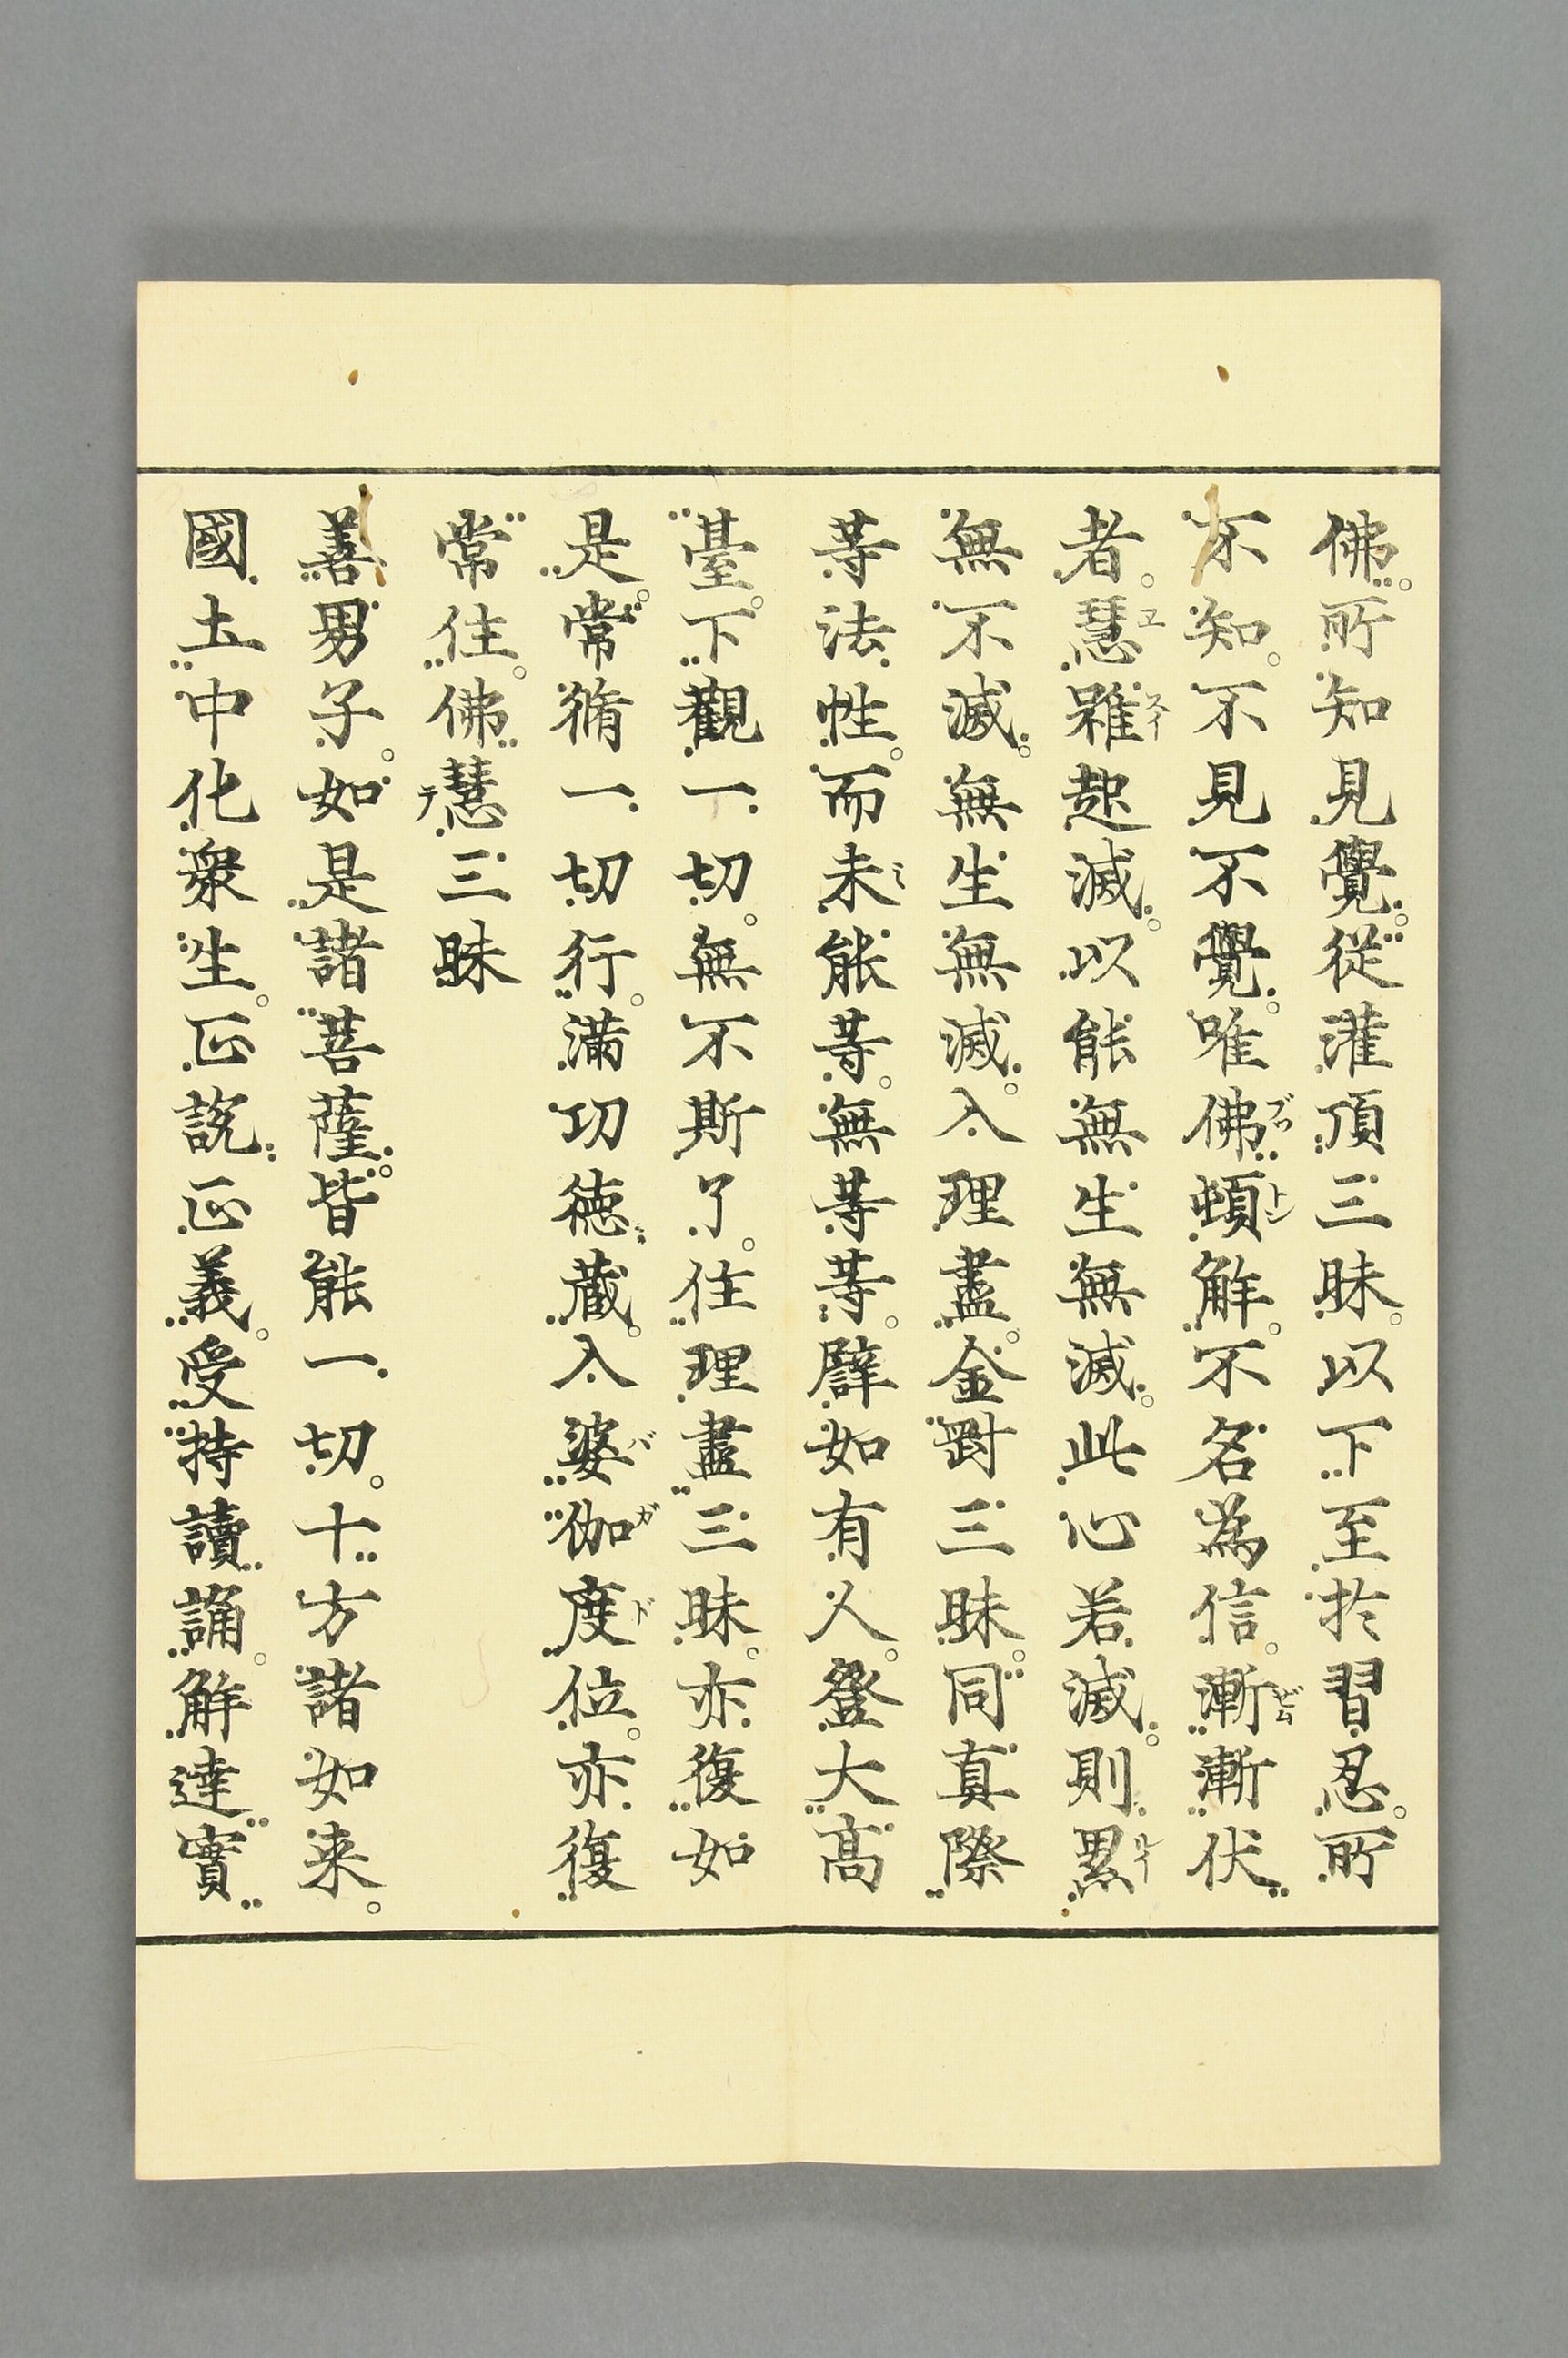 佛。所知見覺。從灌頂三昧。以下至於習忍。所
不知。不見不覺。唯佛頓解。不名為信。漸漸伏
者。慧雖起滅。以能無生無滅。此心若滅。則累
無不滅。無生無滅。入理盡。金剛三昧。同真際
等法性。而未能等。無等等。譬如有人。登大高
臺。下觀一切。無不斯了。住理盡三昧。亦復如
是。常脩一切行。滿功徳藏。入婆伽度位。亦復
常住。佛慧三昧
善男子。如是諸菩薩。皆能一切。十方諸如来。
國土中化衆生。正説正義。受持讀誦。解達實